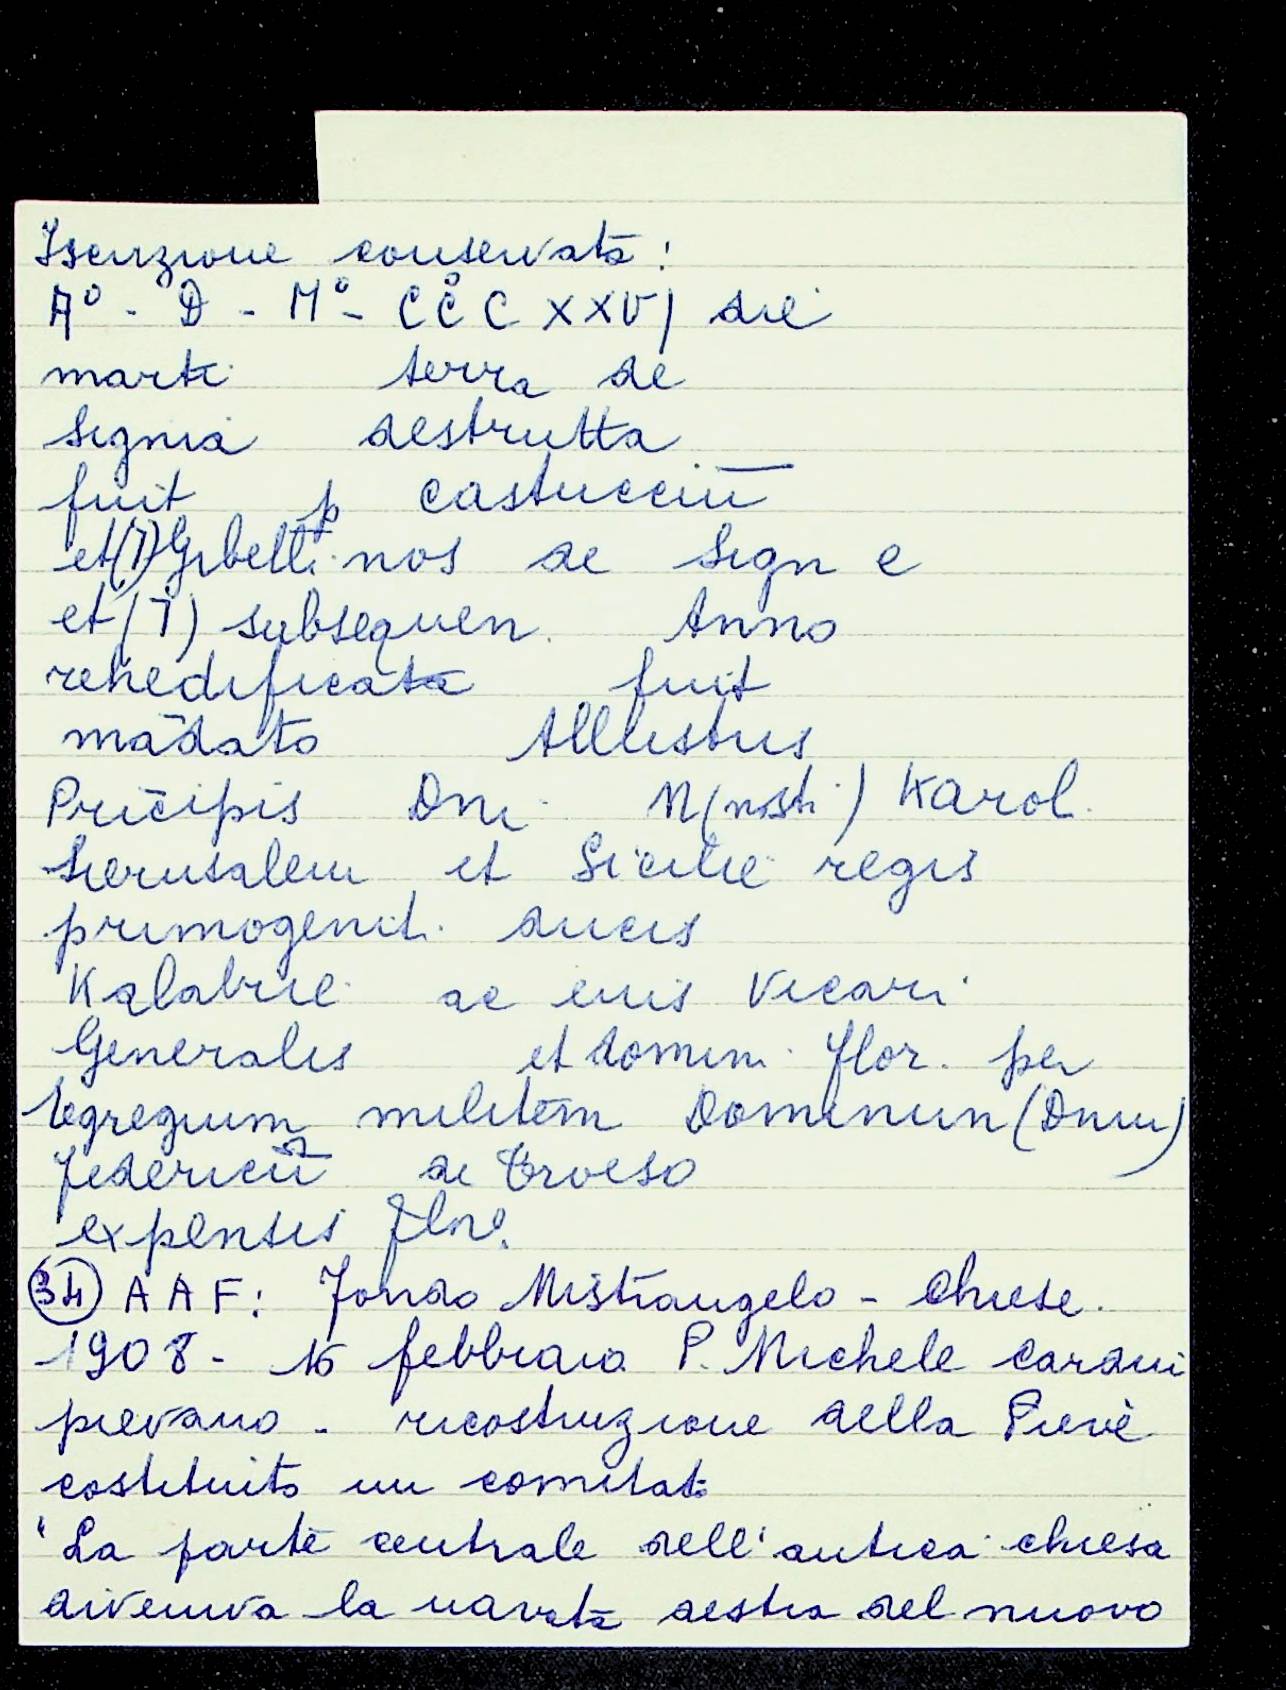 Iscrizione conservata:
A° - D - M° - CCC XXVI die
marti terra de
Signia destrutta
fuit p castucciū
et (7) Gibelli.nos de Sign e
et (7) subsequen. Anno
rehedificata fuit
mādato Allustris
Pricipis Dni. N(nostri) Karol.
Jerusalem et Sicilie regis
primogenit. ducis
Kalabrie ac euis Vicari
Generalis et domini flor. per
egregium militem Dominum (Dnm)
federicū de Troeso
expensis flor.
(34) A A F: Fondo Mistrangelo - Chiese.
1908 - 16 febbraio P. Michele Cardini
pievano - ricostruzione della Pieve
costituito un comitato
"La parte centrale dell'antica chiesa
diveniva la navata destra del nuovo